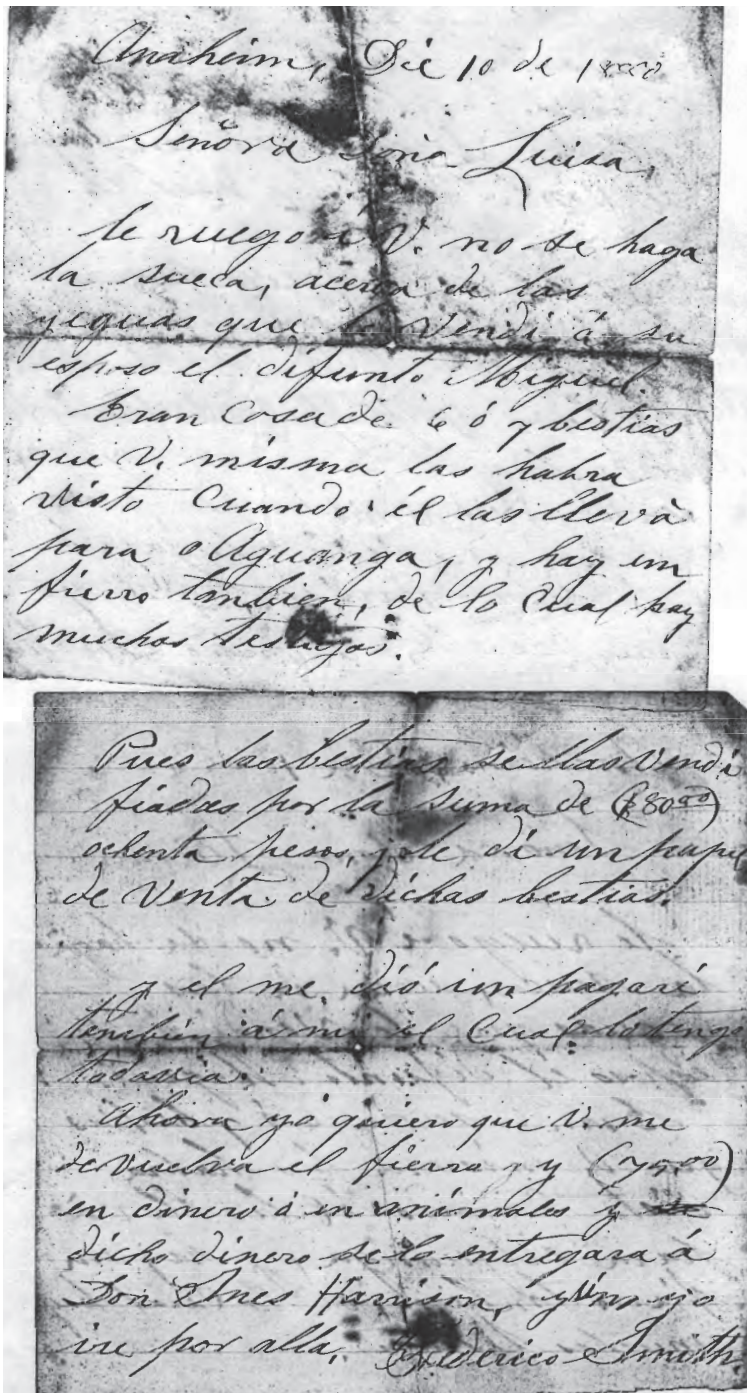 Anaheim, Dic 10 de 18
Señora Doña Luisa,
le ruego á V. no se haga
la sueca, acerca de las
yeguas que le vendi á su
esposo el difunto Miguel.
Eran cosa de 6 ó 7 bestias
que V. misma las habra
visto cuando él las llevó
para Aguanga, y hay un
fierro tambien, de lo cual hay
muchos testigos.
Pues las bestias se llas vendi
fiadas por la suma de ($80.00)
ochenta pesos, y le dí un papel
de venta de dichas bestias.
y el me dió un pagaré
tambien á mi el cual lo tengo
todavia.
Ahora yo quiero que V. me
devuelva el fierro, y
en dinero ó en animales y
dicho dinero se lo entregara á
Don Ines Harrison, yo
ire por alla, Federico Smith.